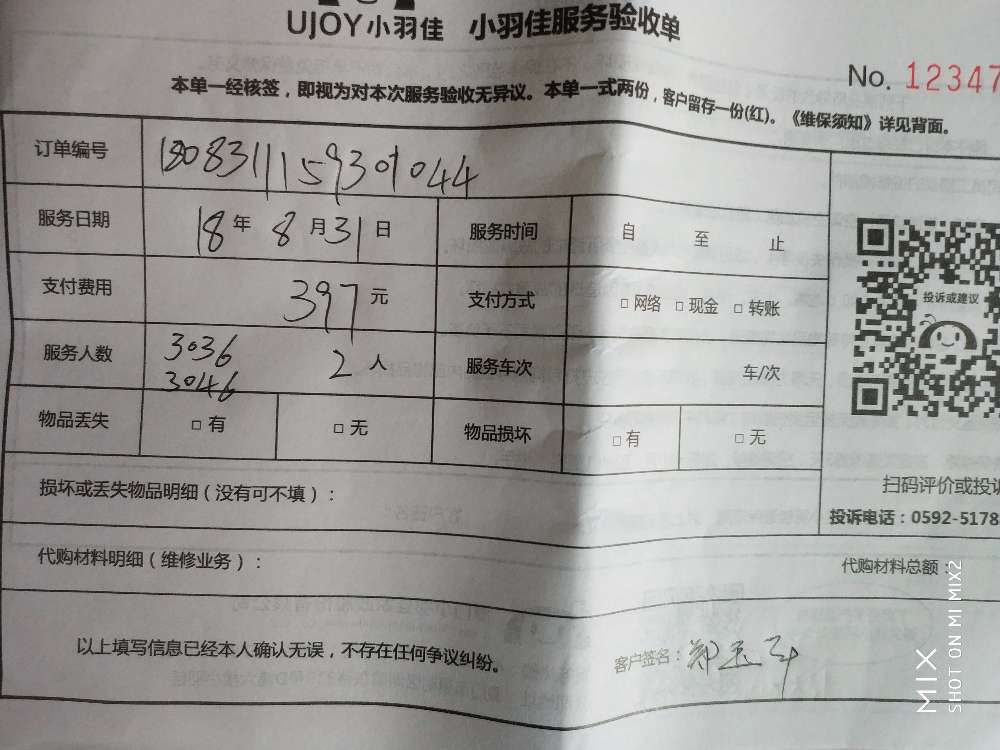 UJOY小羽佳 小羽佳服务验收单
No. 12347
本单一经核签，即视为对本次服务验收无异议。本单一式两份，客户留存一份(红)。《维保须知》详见背面。
订单编号 1808311159301044
服务日期 18年 8月31日 服务时间 自 至 止
支付费用 397元 支付方式 □网络 □现金 □转账
服务人数 3036 3046 2人 服务车次 车/次
物品丢失 □有 □无 物品损坏 □有 □无
投诉或建议
扫码评价或投诉
投诉电话：0592-5178
损坏或丢失物品明细（没有可不填）：
代购材料明细（维修业务）： 代购材料总额：
以上填写信息已经本人确认无误，不存在任何争议纠纷。 客户签名：郑
MIX
SHOT ON MI MIX2